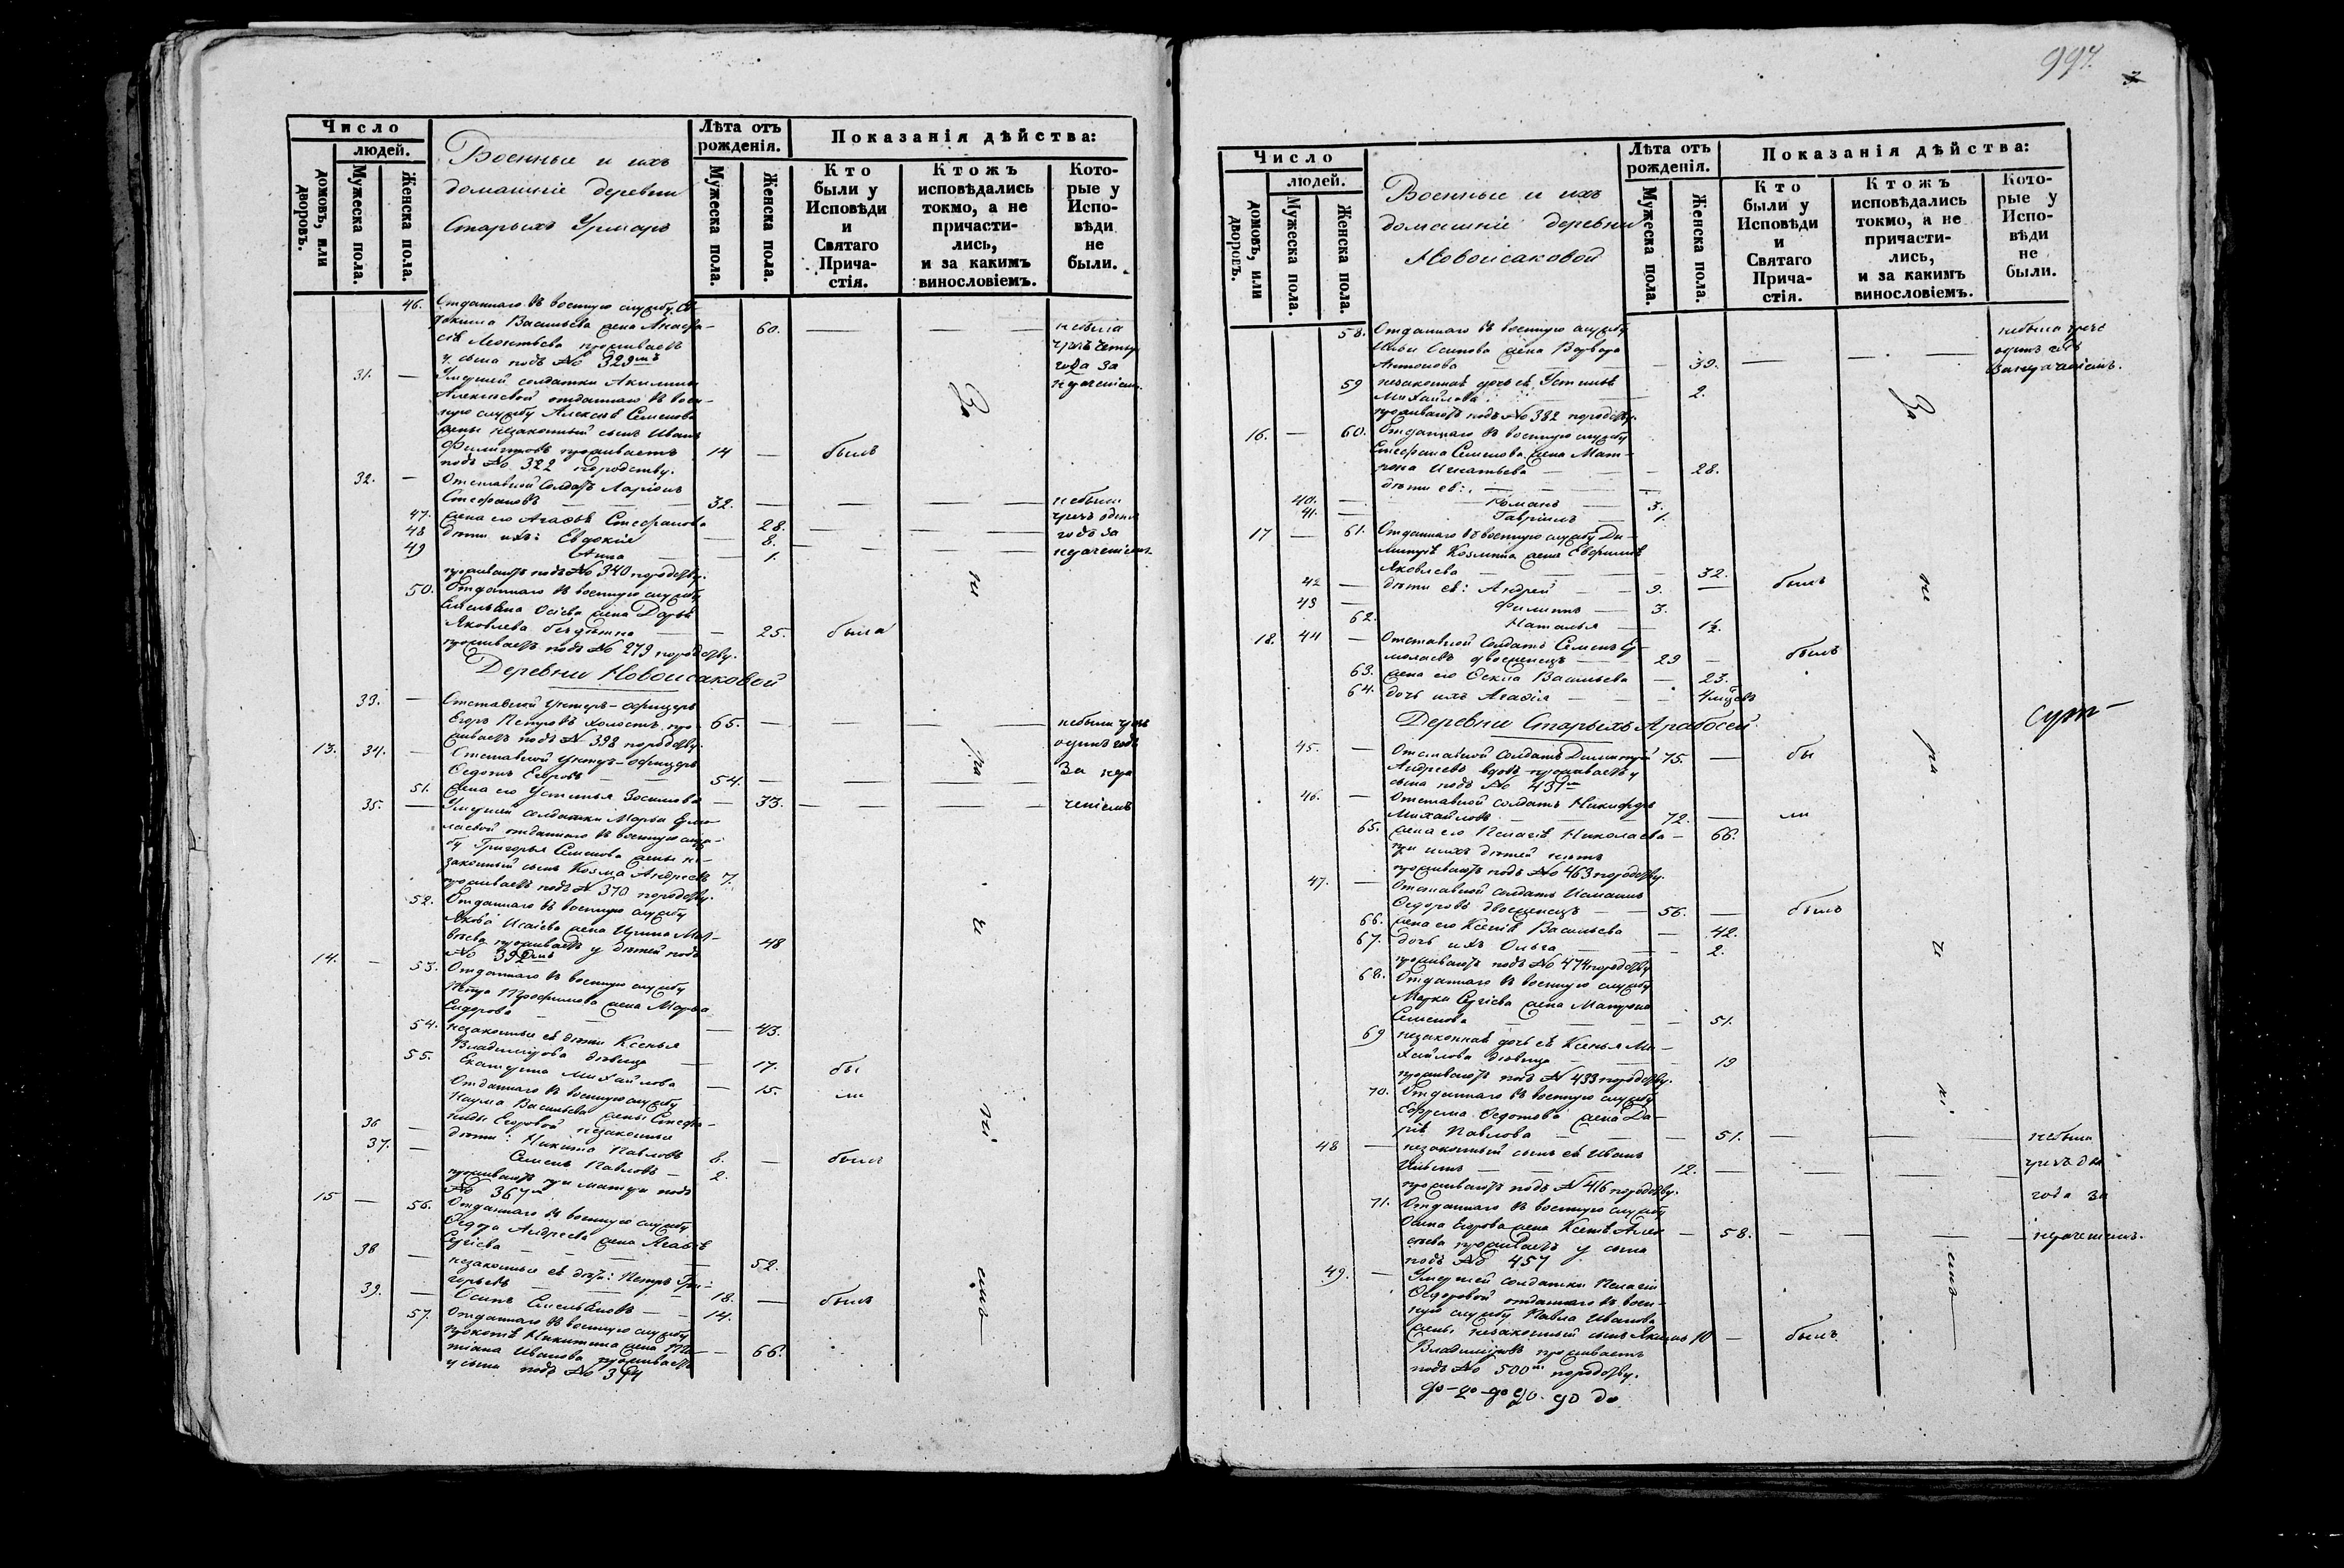 997.
Число
людей.
домовъ, или дворовъ.
Мужеска пола.
Женска пола.
Военные и ихъ
домашніе деревни
Старыхъ Урмаръ
Лѣта отъ
рожденія.
Мужеска пола.
Женска пола.
Показанія дѣйства:
Кто
были у
Исповѣди
и
Святаго
Прича-
стія.
Ктожъ
исповѣдались
токмо, а не
причасти-
лись,
и за какимъ
винословіемъ.
Кото-
рые у
Испо-
вѣди
не
были.
46. Отданнаго въ военную службу Ев-
докима Васильева жена Анаста-
сія Леонтьева проживаетъ 60. небыла
у сына подъ № 329мъ
года за
31. Умершей солдатки Акилины нераченіемъ
Алексѣевой отданнаго въ воен-
ную службу Алексѣя Семенова
жены незаконный сынъ Иванъ
Филиповъ проживаетъ 14 былъ
подъ № 322 по родству.
32. Отставной Солдатъ Ларіонъ
Стефановъ 32. небыли
47. жена его Агафья Стефанова 28. чрезъ одинъ
48 дѣти ихъ: Евдокія 8. годъ за
49 Анна 1. нераченіемъ
проживаютъ подъ № 340 породству.
50. Отданнаго въ военную службу
Емельяна Осіева жена Дарья
Яковлева бездѣтна 25. была
проживаетъ подъ № 279 породству.
Деревни Новоисаковой
33. Отставной Унтеръ-офицеръ
Егоръ Петровъ холостъ про- 65. небыли чрезъ
живаетъ подъ № 398 породству. одинъ годъ
13. 34. Отставной Унтеръ-офицеръ За нера
Федотъ Егоровъ 54.
51. жена его Устинья Зосимова 33. ченіемъ
35. Умершей солдатки Марьи Ермо-
лаевой отданнаго въ военную служ-
бу Григорья Семенова жены не-
законный сынъ Козма Андреевъ 7.
проживаетъ подъ № 370 породству.
52. Отданнаго въ военную службу
Якова Исаіева жена Ирина Мат-
вѣева проживаетъ у дѣтей подъ 48
№ 392мъ
14. 53. Отданнаго въ военную службу
Петра Трофимова жена Марья
Сидорова 43.
54. незаконные ея дѣти Ксенья
Владимірова дѣвица 17. бы
55. Екатерина Михайлова 15. ли
Отданнаго въ военную службу
Наума Васильева жены Стефа-
ниды Егоровой незаконные
36 дѣти: Никита Павловъ 8. былъ
37. Семенъ Павловъ 2.
проживаютъ при матери подъ
№ 367м
15 56. Отданнаго въ военную службу
Федора Андреева жена Агафія
Сергіева 52.
38 незаконные ея дѣти: Петръ Гри-
горьевъ 18. былъ
39. Осипъ Емельяновъ 14.
57. Отданнаго въ военную службу
Прокопія Никитина жена Та-
тіана Иванова проживаетъ 66.
у сына подъ № 394
За
не
ра
че
ні
емъ
Число
людей.
домовъ, или дворовъ.
Мужеска пола.
Женска пола.
Военные и ихъ
домашніе деревни
Новоисаковой
Лѣта отъ
рожденія.
Мужеска пола.
Женска пола.
Показанія дѣйства:
Кто
были у
Исповѣди
и
Святаго
Прича-
стія.
Ктожъ
исповѣдались
токмо, а не
причасти-
лись,
и за какимъ
винословіемъ.
Кото-
рые у
Испо-
вѣди
не
были.
58. Отданнаго въ военную службу небыла чрезъ
Ильи Осипова жена Варвара одинъ годъ
Антонова 39. за нераченіемъ.
59 незаконная дочь ея Устинья
Михайлова 2.
проживаютъ подъ № 382 породству.
16. 60. Отданнаго въ военную службу
Стефана Семенова жена Мат-
рона Игнатьева 28.
дѣти ея:
40. Романъ 3.
41. Гавріилъ 1.
17 61. Отданнаго въ военную службу Ди-
митрія Козмина жена Евфимія
Яковлева 32.
42 дѣти ея: Андрей 9. былъ
43 Филиппъ 3.
62. Наталья 1½.
18. 44 Отставной Солдатъ Семенъ Ер-
молаевъ двоеженецъ 29 былъ
63. жена его Фекла Васильева 23.
64. дочь ихъ Агафія 4 мѣсяцъ
Деревни Старыхъ Арабосей.
45. Отставной Солдатъ Димитрій 75. бы
Андреевъ вдовъ проживаетъ у
сына подъ № 431м
46. Отставной солдатъ Никифоръ
Михайловъ 72. ли
65. жена его Пелагія Николаева 66.
при нихъ дѣтей нетъ
проживаютъ подъ № 463 породству.
47. Отставной солдатъ
Федоровъ двоеженецъ 56. былъ
66. жена его Ксенія Васильева 42.
67. дочь ихъ Ольга 2.
проживаютъ подъ № 474 породству
68. Отданнаго въ военную службу
Марка Сергіева жена Матрона
Семенова 51.
69 незаконная дочь ея Ксенья Ми-
хайлова дѣвица 19
проживаютъ подъ № 433 породству.
70. Отданнаго въ военную службу
Ефрема Федотова жена Да-
рія Павлова 51. небыли
48 незаконный сынъ ея Иванъ чрезъ два
12.
проживаютъ подъ № 416 породству. года за
71. Отданнаго въ военную службу
Осипа Егорова жена Ксенія Алек-
сѣева проживаетъ у сына 58. нераченіемъ.
подъ № 457
49. Умершей солдатки Пелагіи
Федоровой отданнаго въ воен-
ную службу Павла Иванова
жены незаконный сынъ Якимъ 10 былъ
Владиміровъ проживаетъ
подъ № 500м породству.
За
не
ра
че
ні
емъ